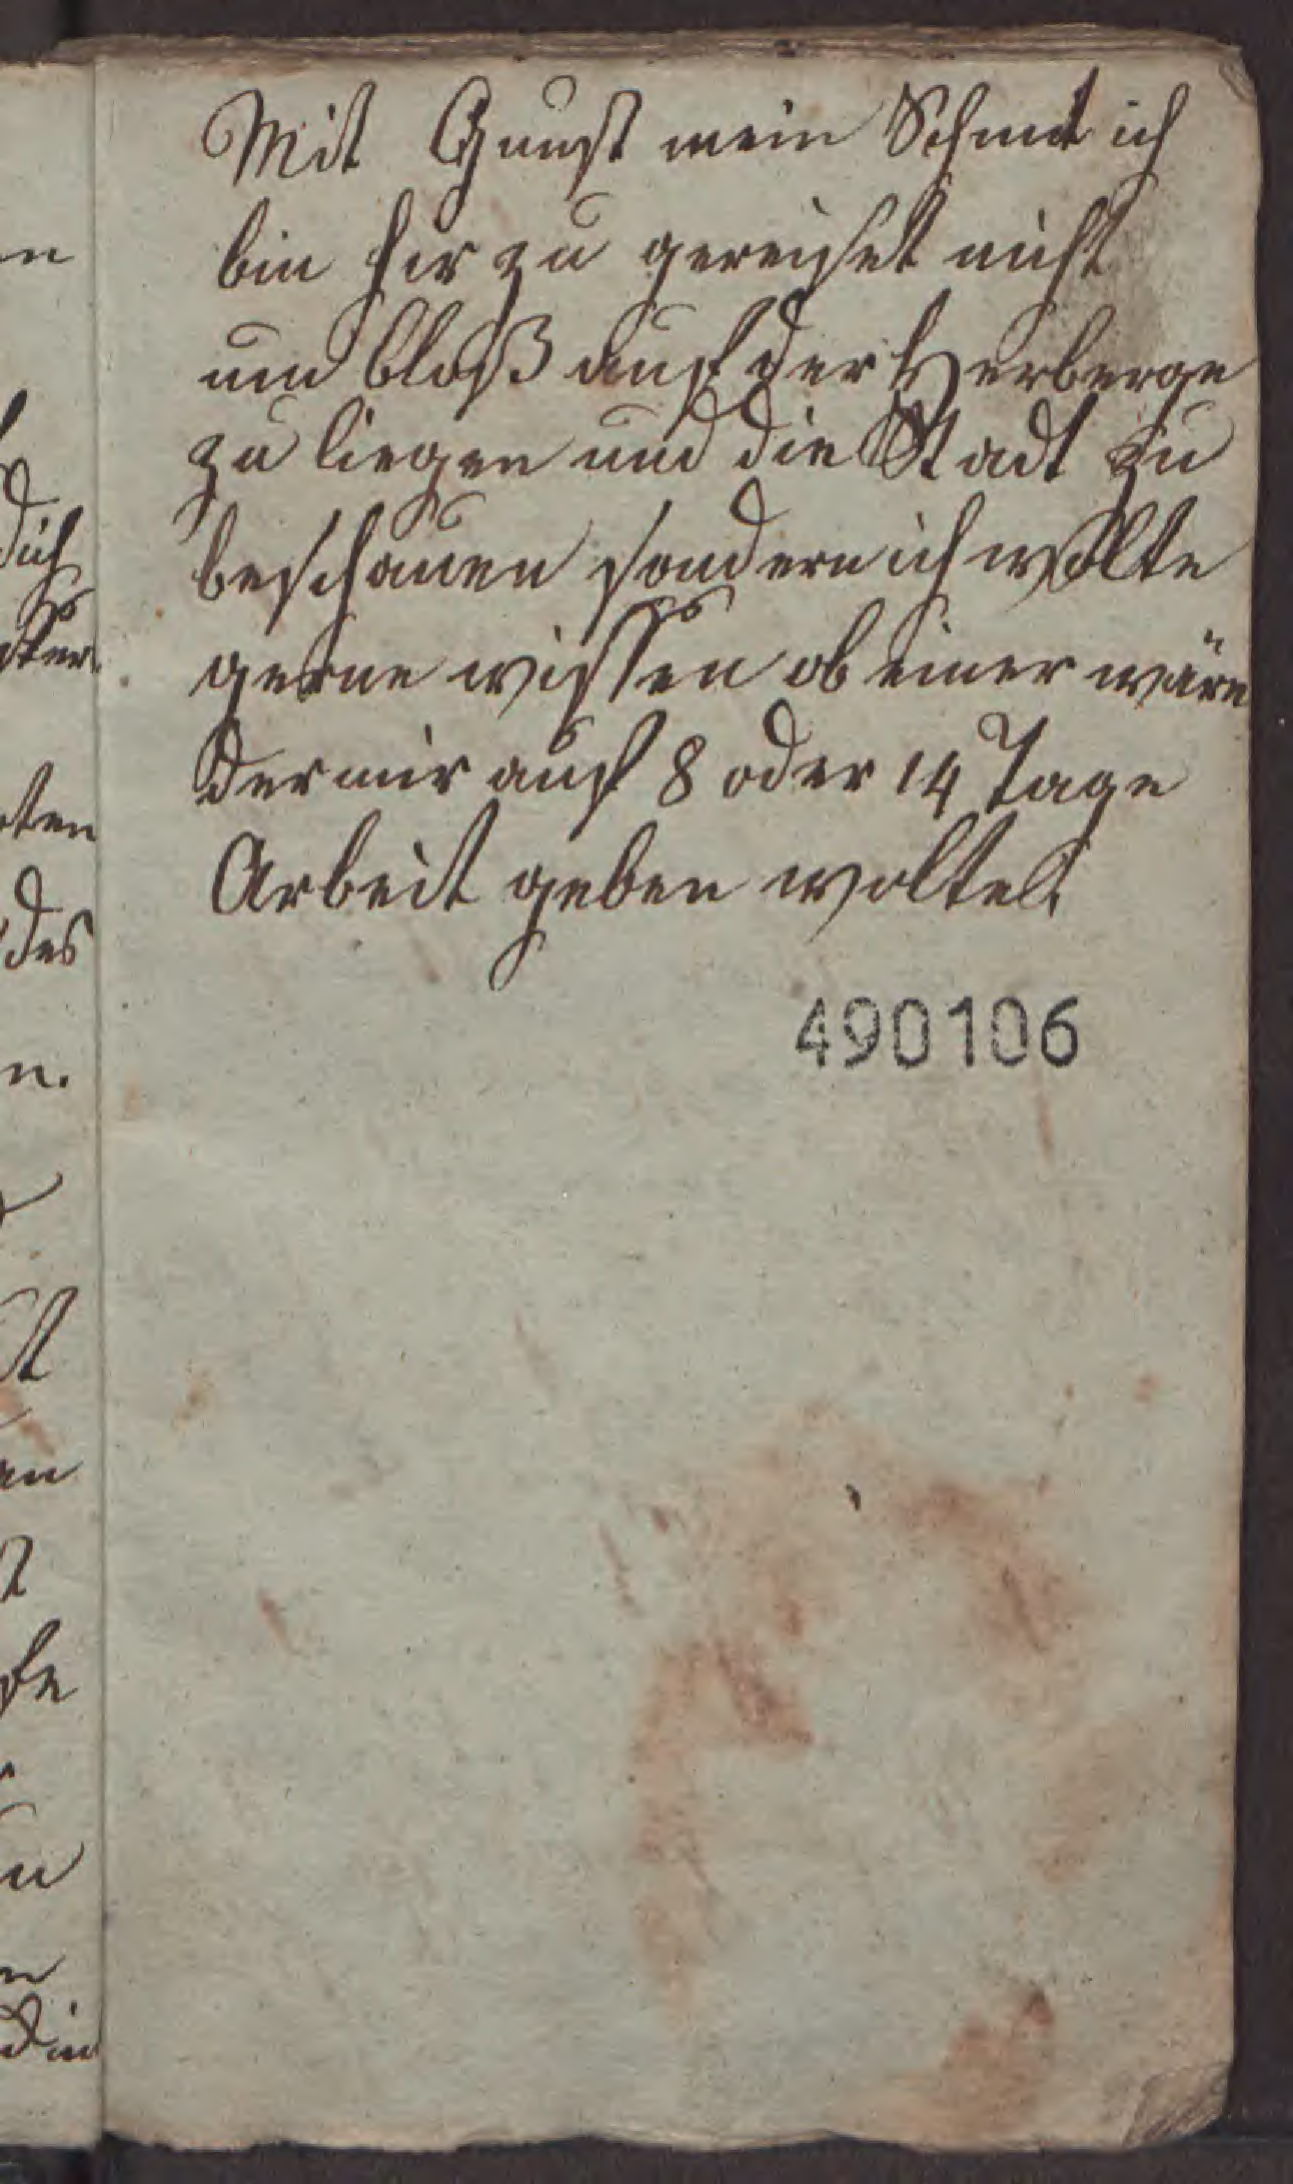 Mit Gunst mein Schmit ich
bin hir zu gereiset nicht
um bloß auf der Herberge
zu liegen und die Stadt zu
beschauen sondern ich wollte
gerne wissen ob einer wäre
der mir auf 8 oder 14 Tage
Arbeit geben wolte.
490106